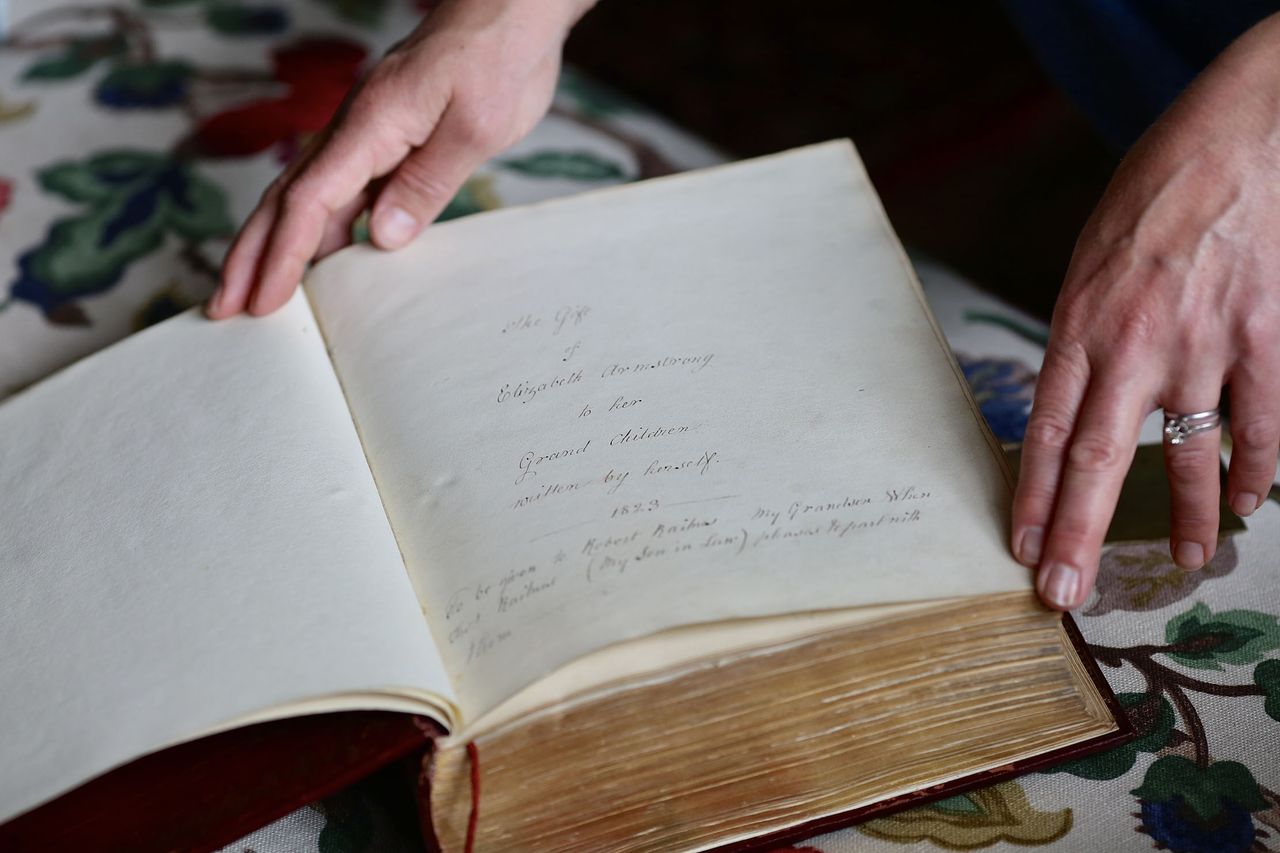 The Gift
of
Elizabeth Armstrong
to her
Grand Children
written by herself.
1823
To be given to Robert Raikes My Grandson When
Raikes (My Son in Law) pleases to part with
them